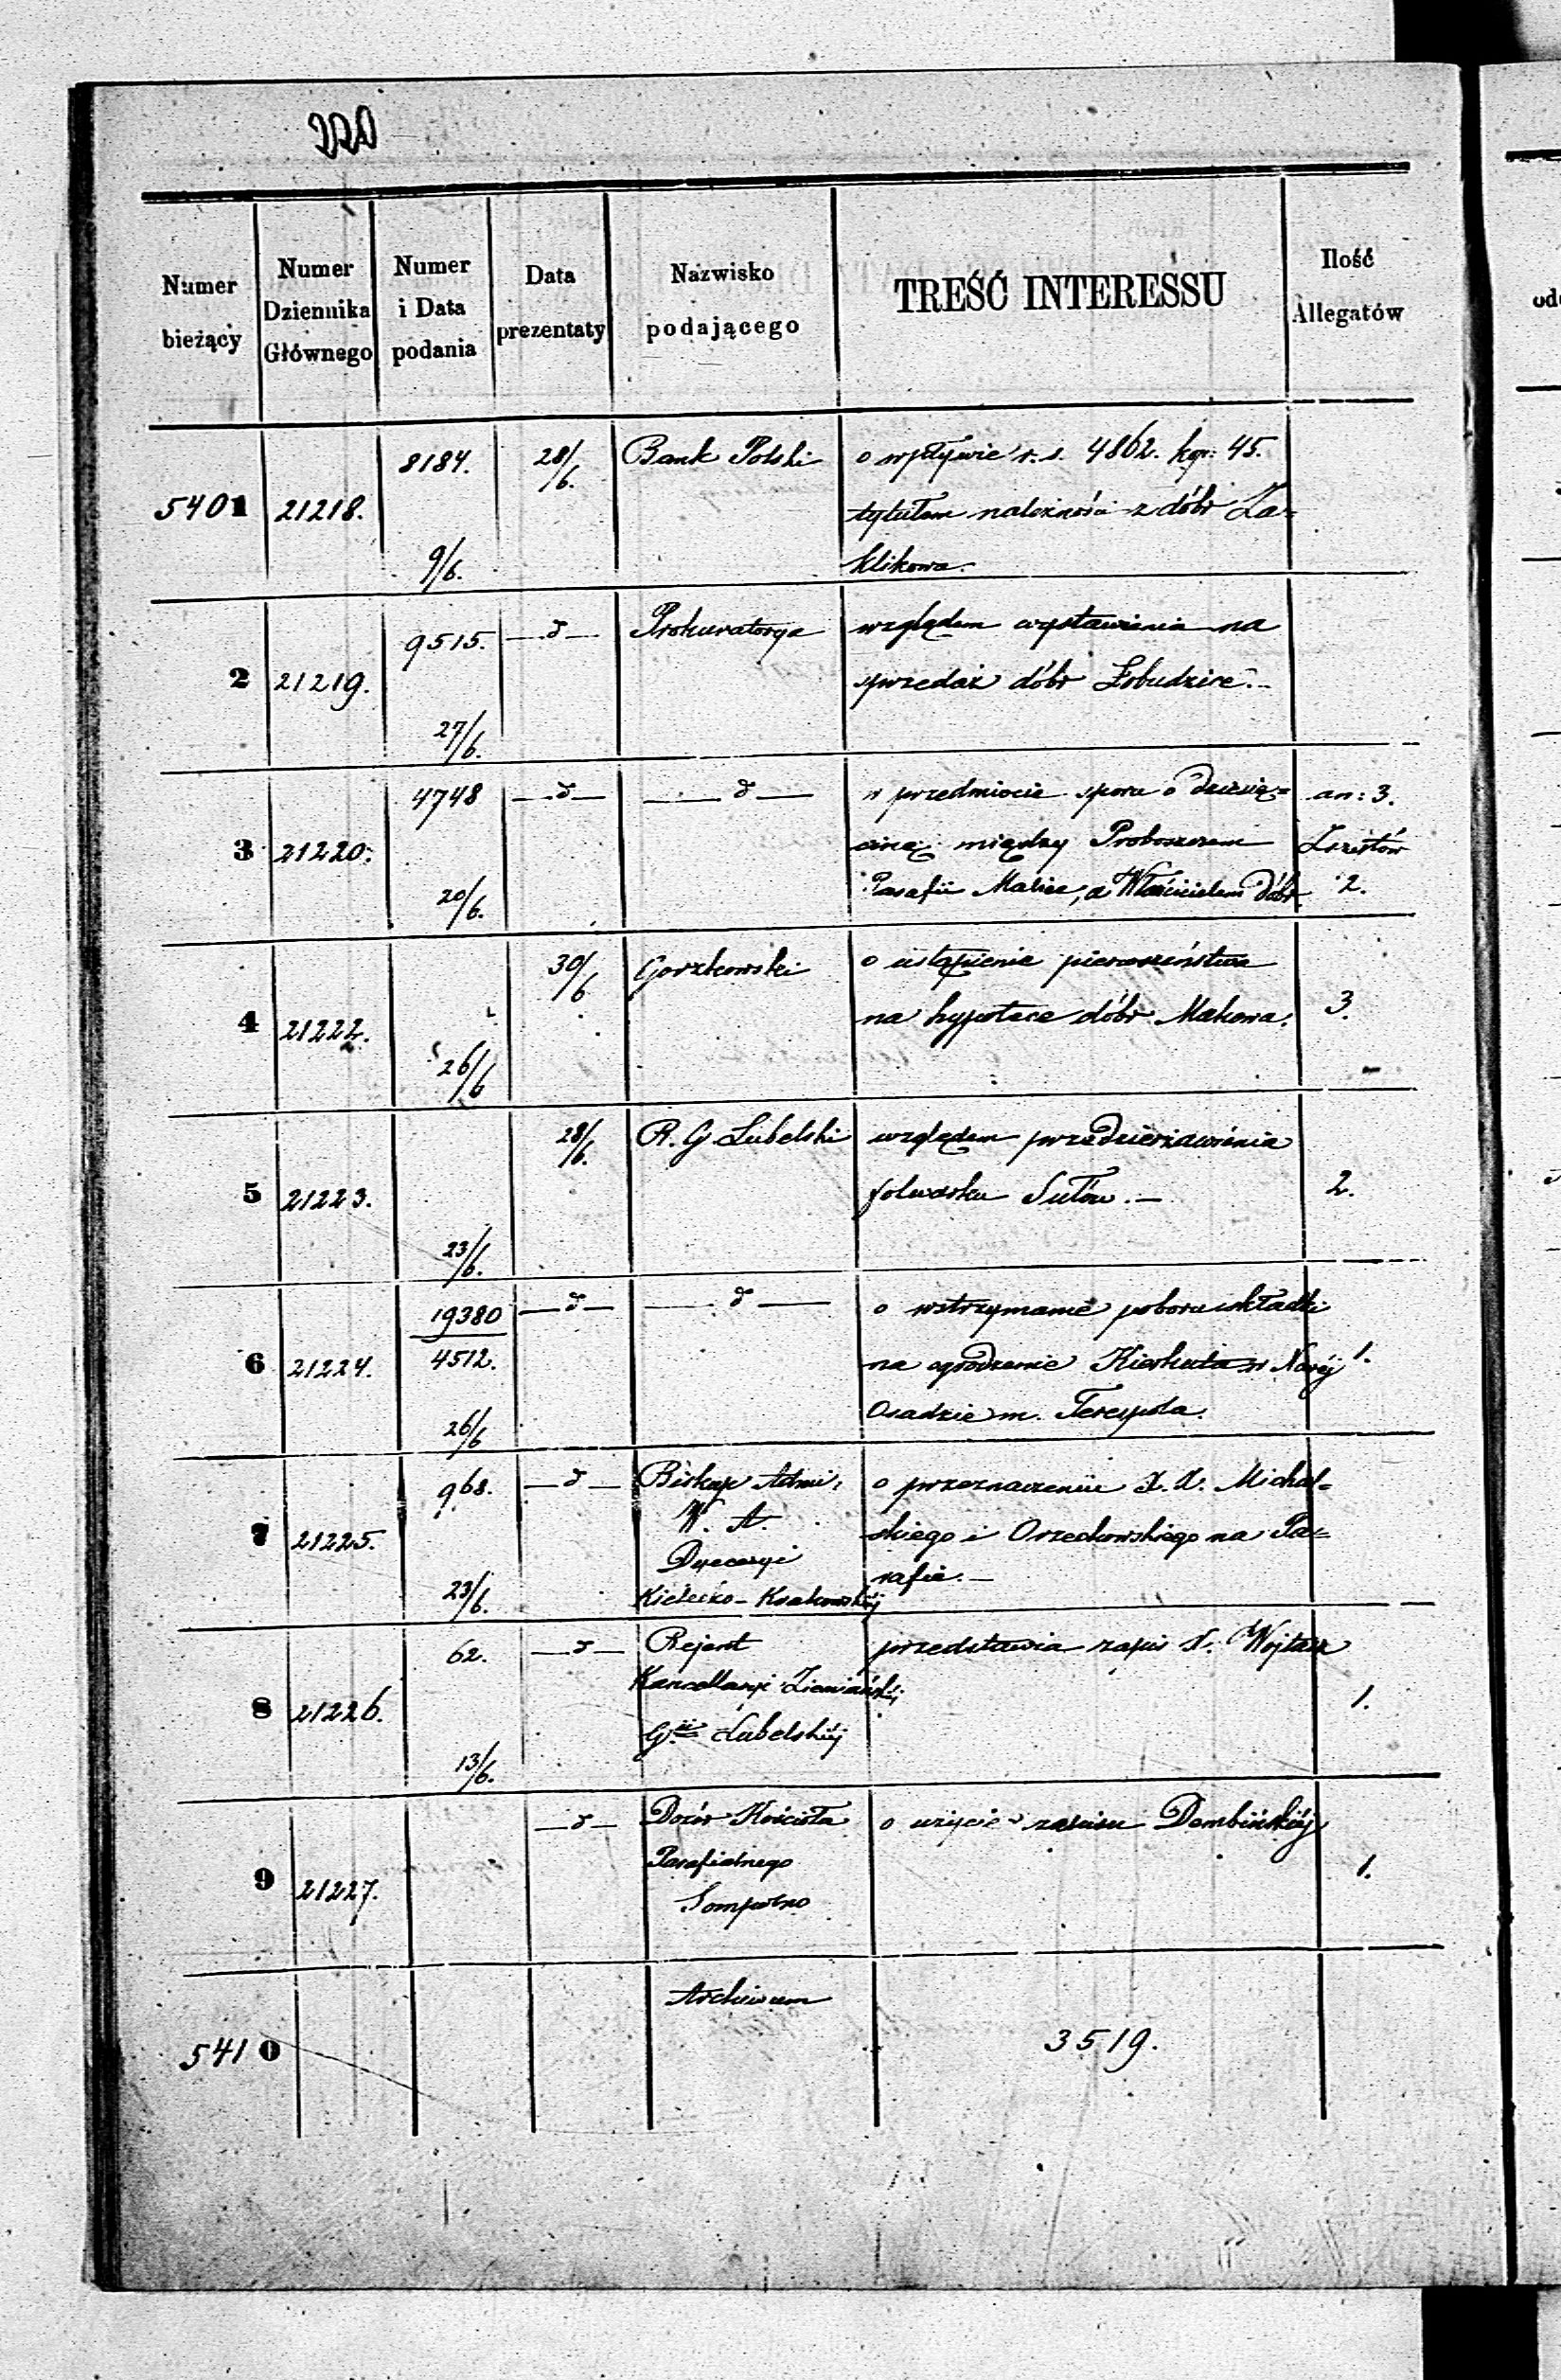 220
Numer bieżący
Numer Dziennika Głównego
Numer i Data podania
Data prezentaty
Nazwisko podającego
TREŚĆ INTERESSU
Ilość Allegatów
5401 21218. 8184. 9/6. 28/6. Bank Polski o wpływie r. s. 4862. kop: 45.
tytułem należności z dóbr Za=
klikowa.
2 21219. 9515. 27/6. —d— Prokuratorya względem wystawienia na
sprzedaż dóbr Łobudzice.
3 21220. 4748 20/6. —d— —d— w przedmiocie sporu o dziesię= an: 3.
cinę między Proboszczem Zeszytów
Parafii Malice, a Właścicielem dóbr 2.
4 21222. 26/6 30/6 Gorzkowski o ustąpienie pierwszeństwa
na hypotece dóbr Makowa. 3.
5 21223. 23/6. 28/6. R. G. Lubelski względem przedzierżawienia
folwarku Sułów. — 2.
6 21224. 19380 —d— —d— o wstrzymanie poboru składki
4512. na ogrodzenie Kierkuta w Nowéj 1.
26/6 Osadzie m. Terespola.
7 21225. 968. 23/6. —d— Biskup Admi: o przeznaczeniu X. X. Michal=
W. A. skiego i Orzechowskiego na Pa=
Dyecezyi rafie. —
Kielecko-Krakowskiéj
8 21226. 62. 13/6. —d— Rejent przedstawia zapis X. Wojtasz
Kancellaryi Ziemiańskiéj 1.
Gii Lubelskiéj
9 21227. —d— Dozór Kościoła o użycie Dembińskiéj
Parafialnego 1.
Sompolno
5410 Archiwum 3519.